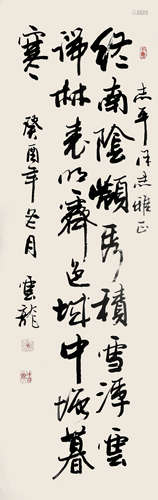 志平同志雅正
終南陰嶺秀積雪浮雲
端林表明霽色城中增暮
寒 癸酉年冬月 雲龍